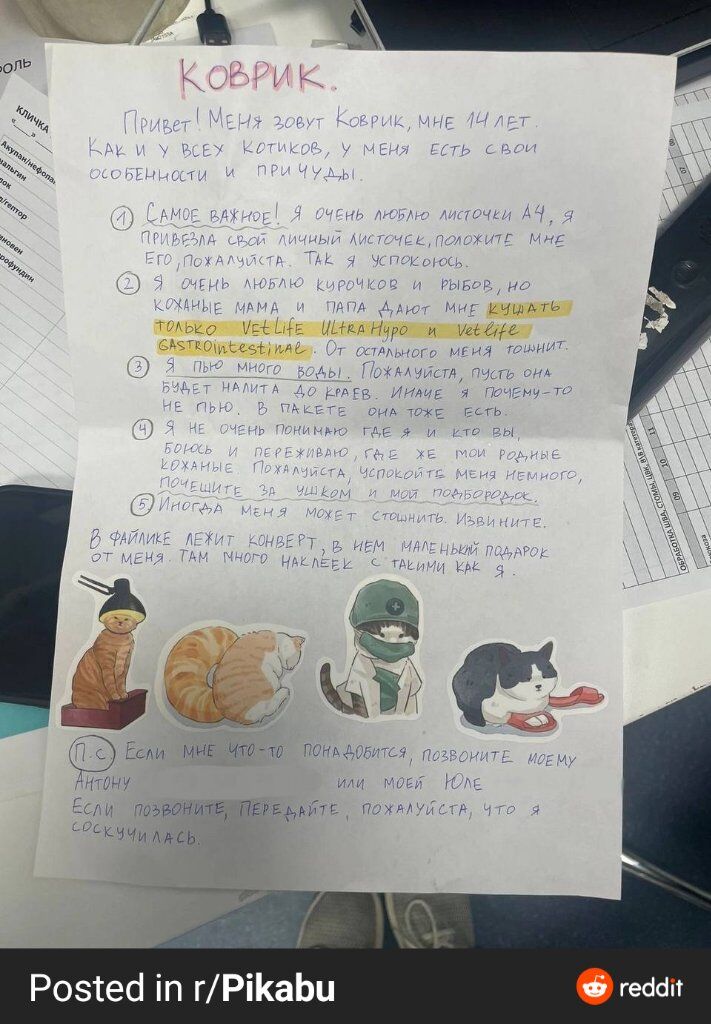 КОВРИК.
Привет! Меня зовут Коврик, мне 14 лет.
Как и у всех котиков, у меня есть свои
особенности и причуды.
① Самое важное! Я очень люблю листочки А4, я
привезла свой личный листочек, положите мне
его, пожалуйста. Так я успокоюсь.
② Я очень люблю курочков и рыбов, но
кожаные мама и папа дают мне кушать
только Vet Life Ultra Hypo и Vet life
Gastrointestinal. От остального меня тошнит.
③ Я пью много воды. Пожалуйста, пусть она
будет налита до краев. Иначе я почему-то
не пью. В пакете она тоже есть.
④ Я не очень понимаю где я и кто вы,
боюсь и переживаю, где же мои родные
кожаные. Пожалуйста, успокойте меня немного,
почешите за ушком и мой подбородок.
⑤ Иногда меня может стошнить. Извините.
В файлике лежит конверт, в нем маленький подарок
от меня. Там много наклеек с такими как я.
П.С Если мне что-то понадобится, позвоните моему
Антону или моей Юле
Если позвоните, передайте, пожалуйста, что я
соскучилась.
КЛИЧКА
Posted in r/Pikabu
reddit